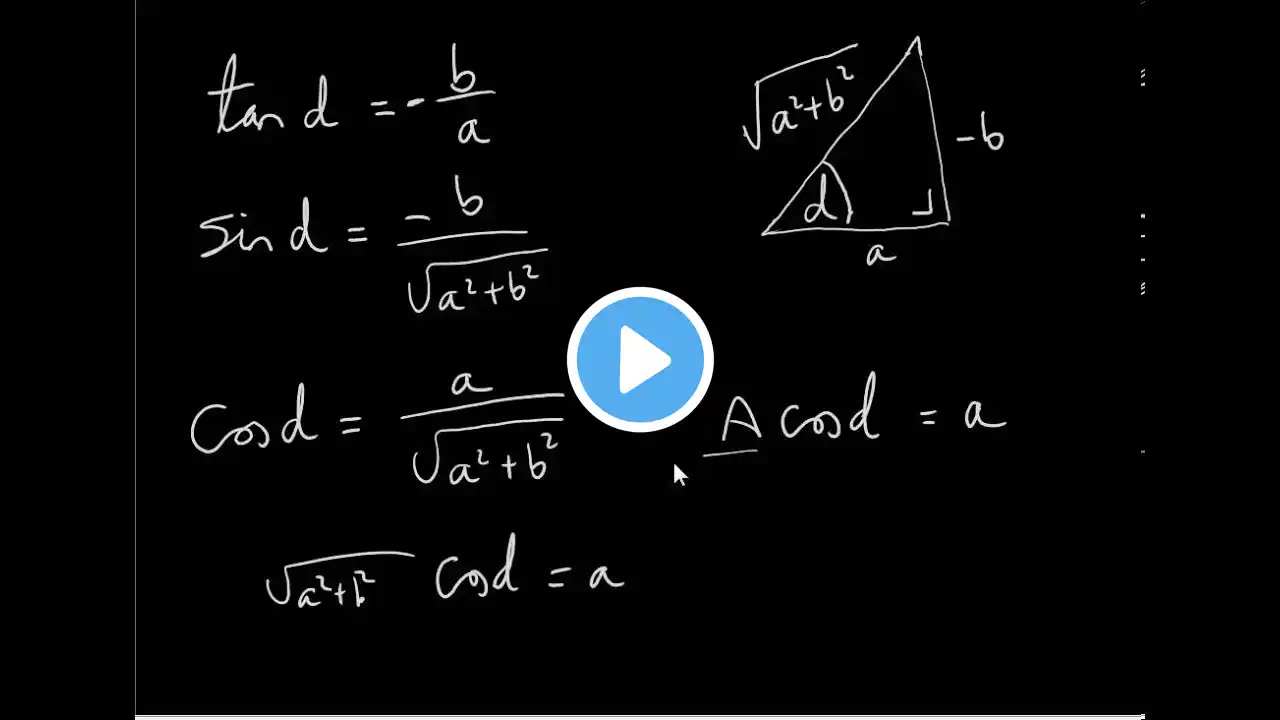 tan d = - b/a
√(a²+b²)
-b
d
a
sin d = -b/√(a²+b²)
cos d = a/√(a²+b²)
A cos d = a
√(a²+b²) cos d = a